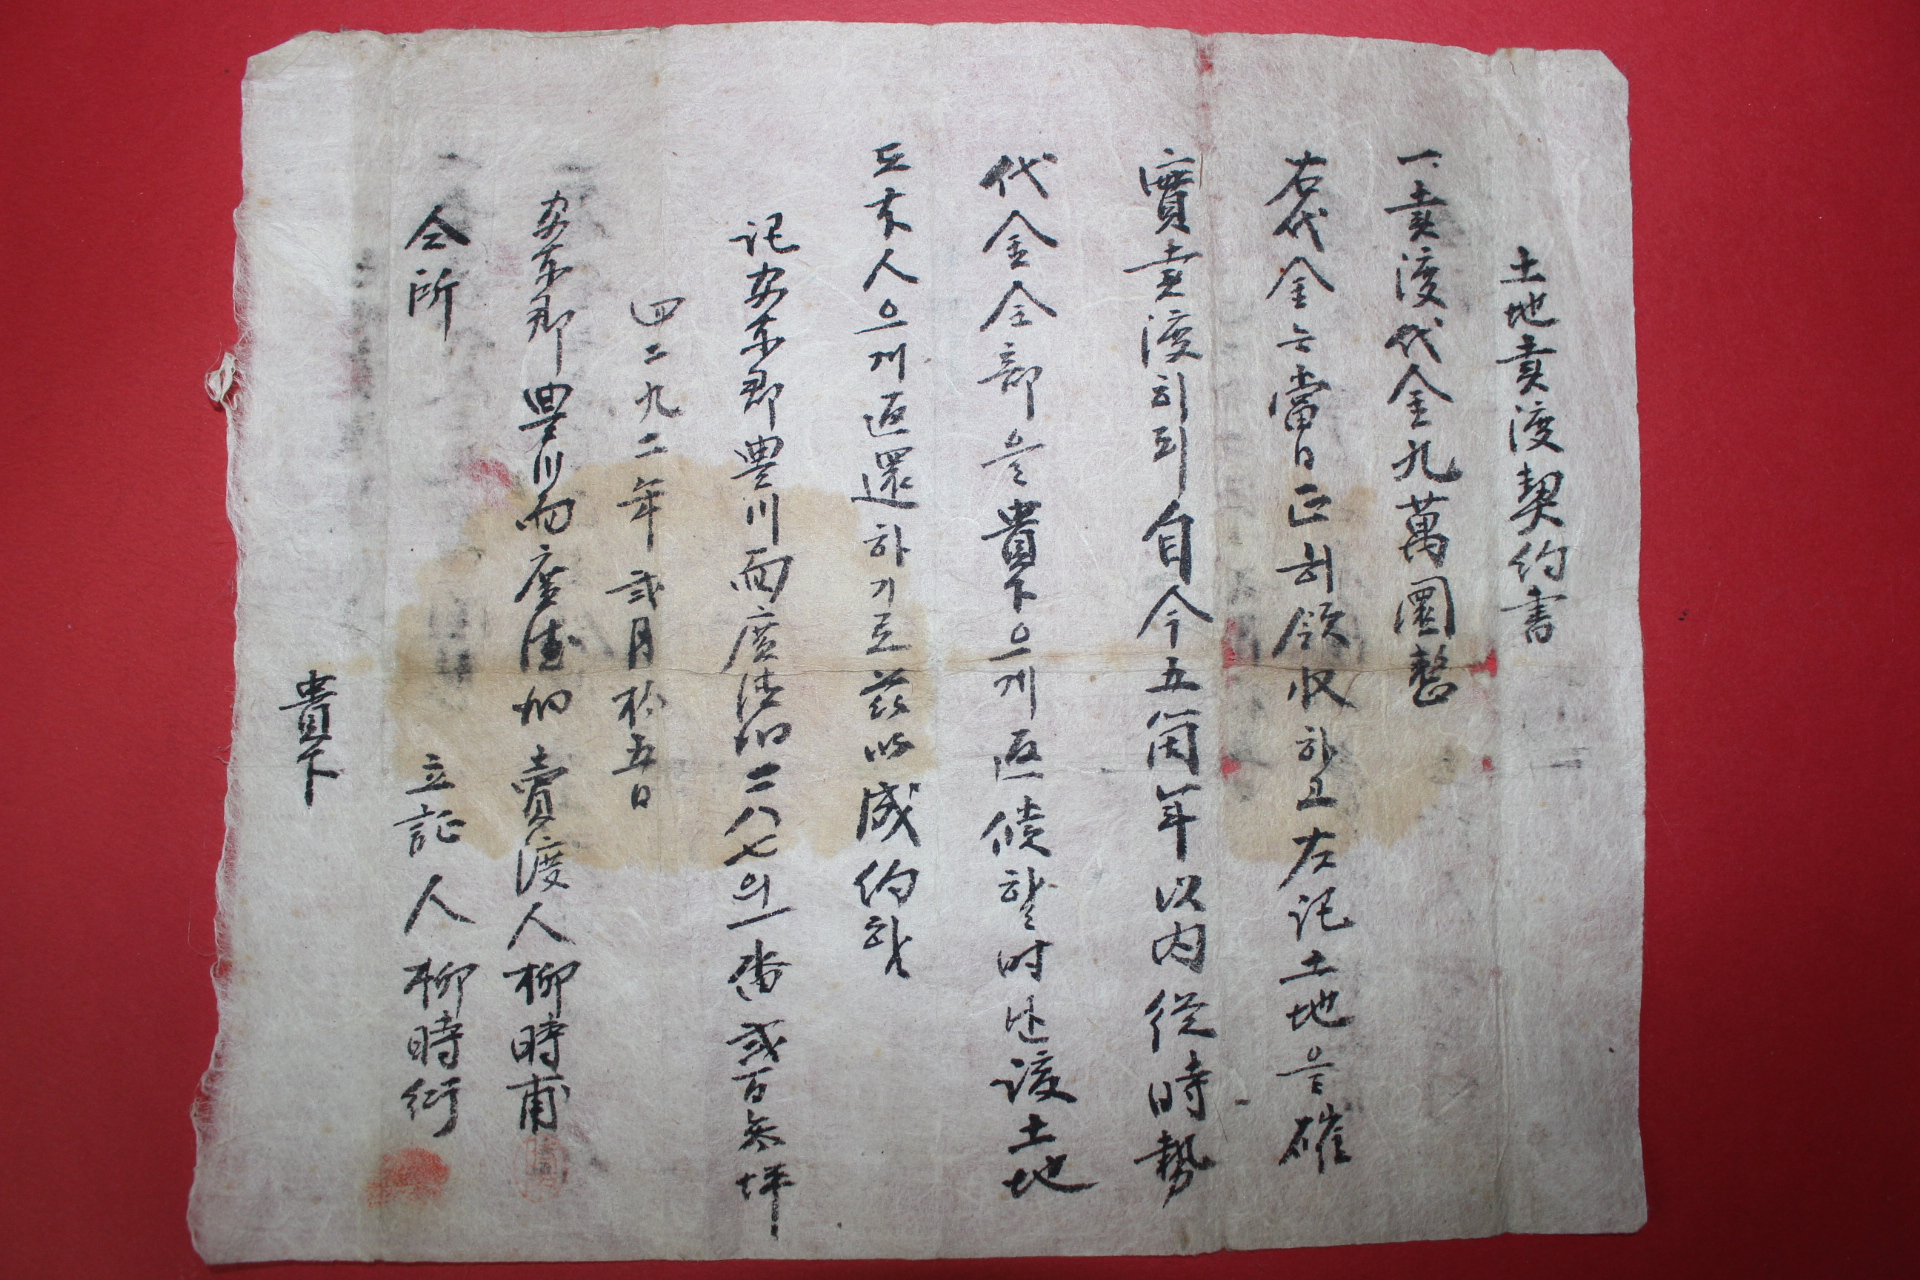 土地賣渡契約書
一. 賣渡代金九萬圜整
右代金는當日正히領收하고左記土地을確
實賣渡히되自今五箇年以內從時勢
代金全部을貴下으게返償할時난該土地
도本人으게返還하기로玆以成約함
記安東郡豊川面廣德洞二八七의一番貳百參坪
四二九二年貳月拾五日
安東郡豊川面廣德洞賣渡人柳時甫
仝所 立証人柳時衍
貴下